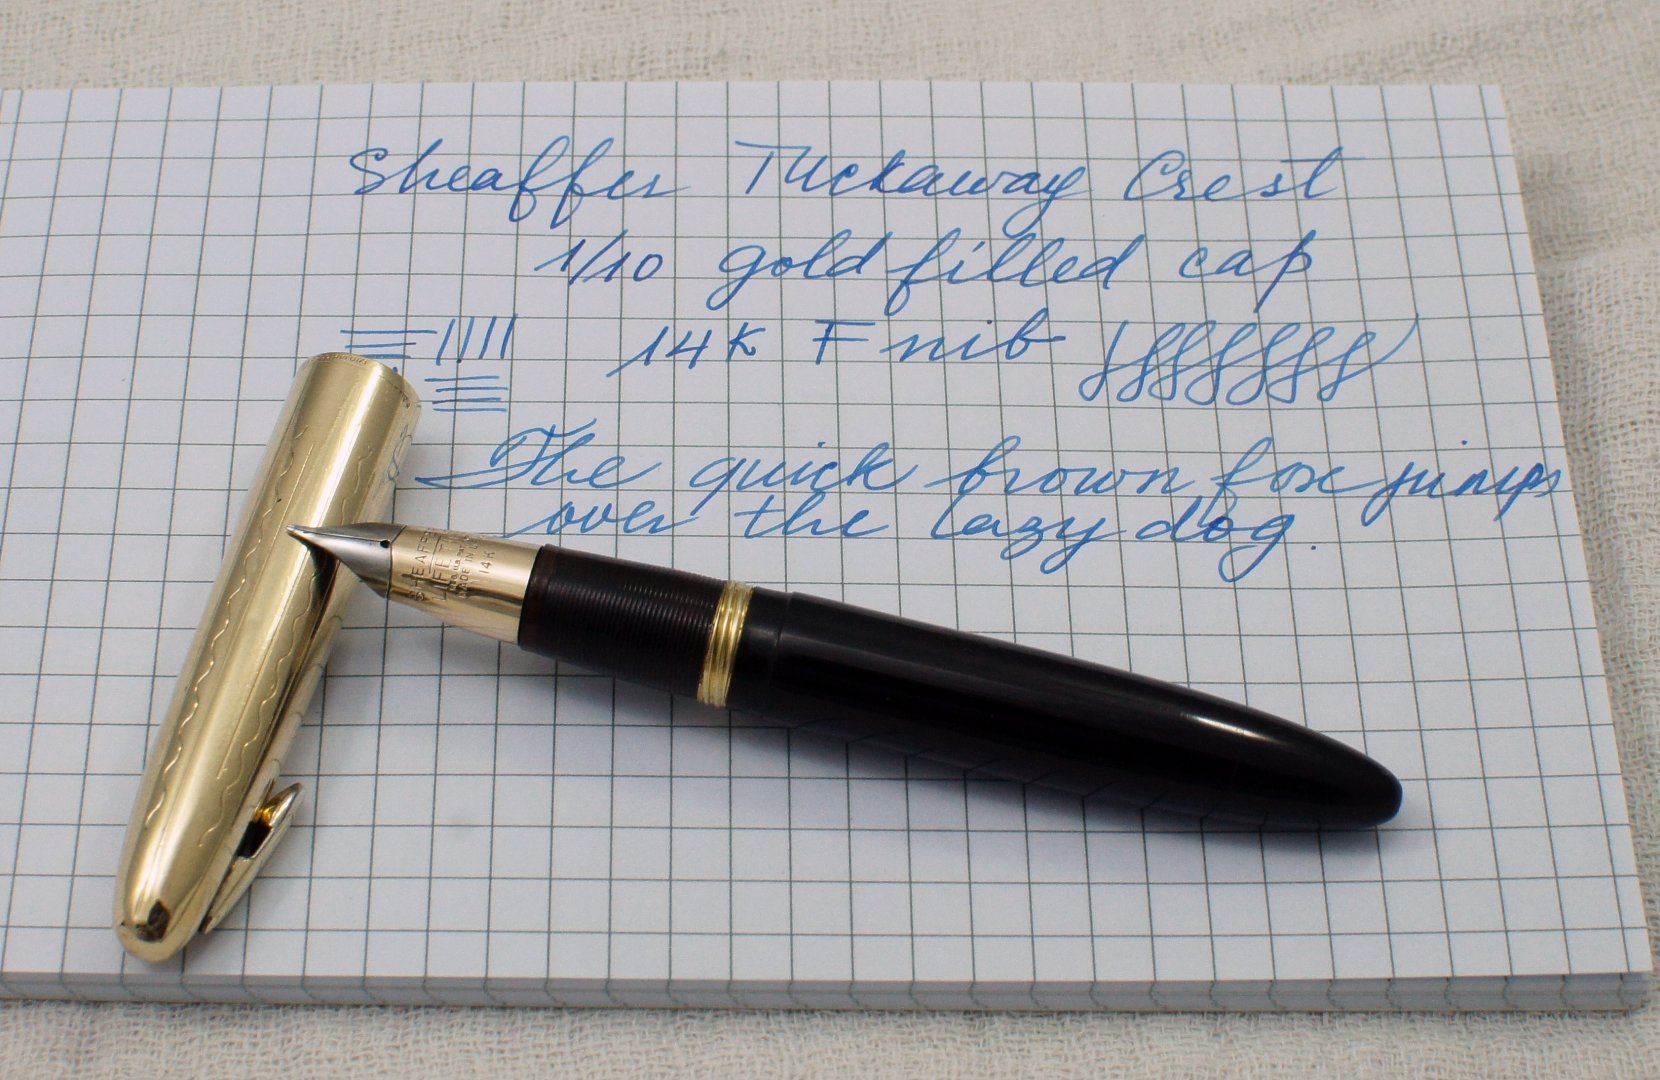 Sheaffer Tuckaway Crest
1/10 gold filled cap
14K F nib
The quick brown fox jumps
over the lazy dog.
SHEAFFER'S
LIFETIME
MADE IN U.S.A.
14K